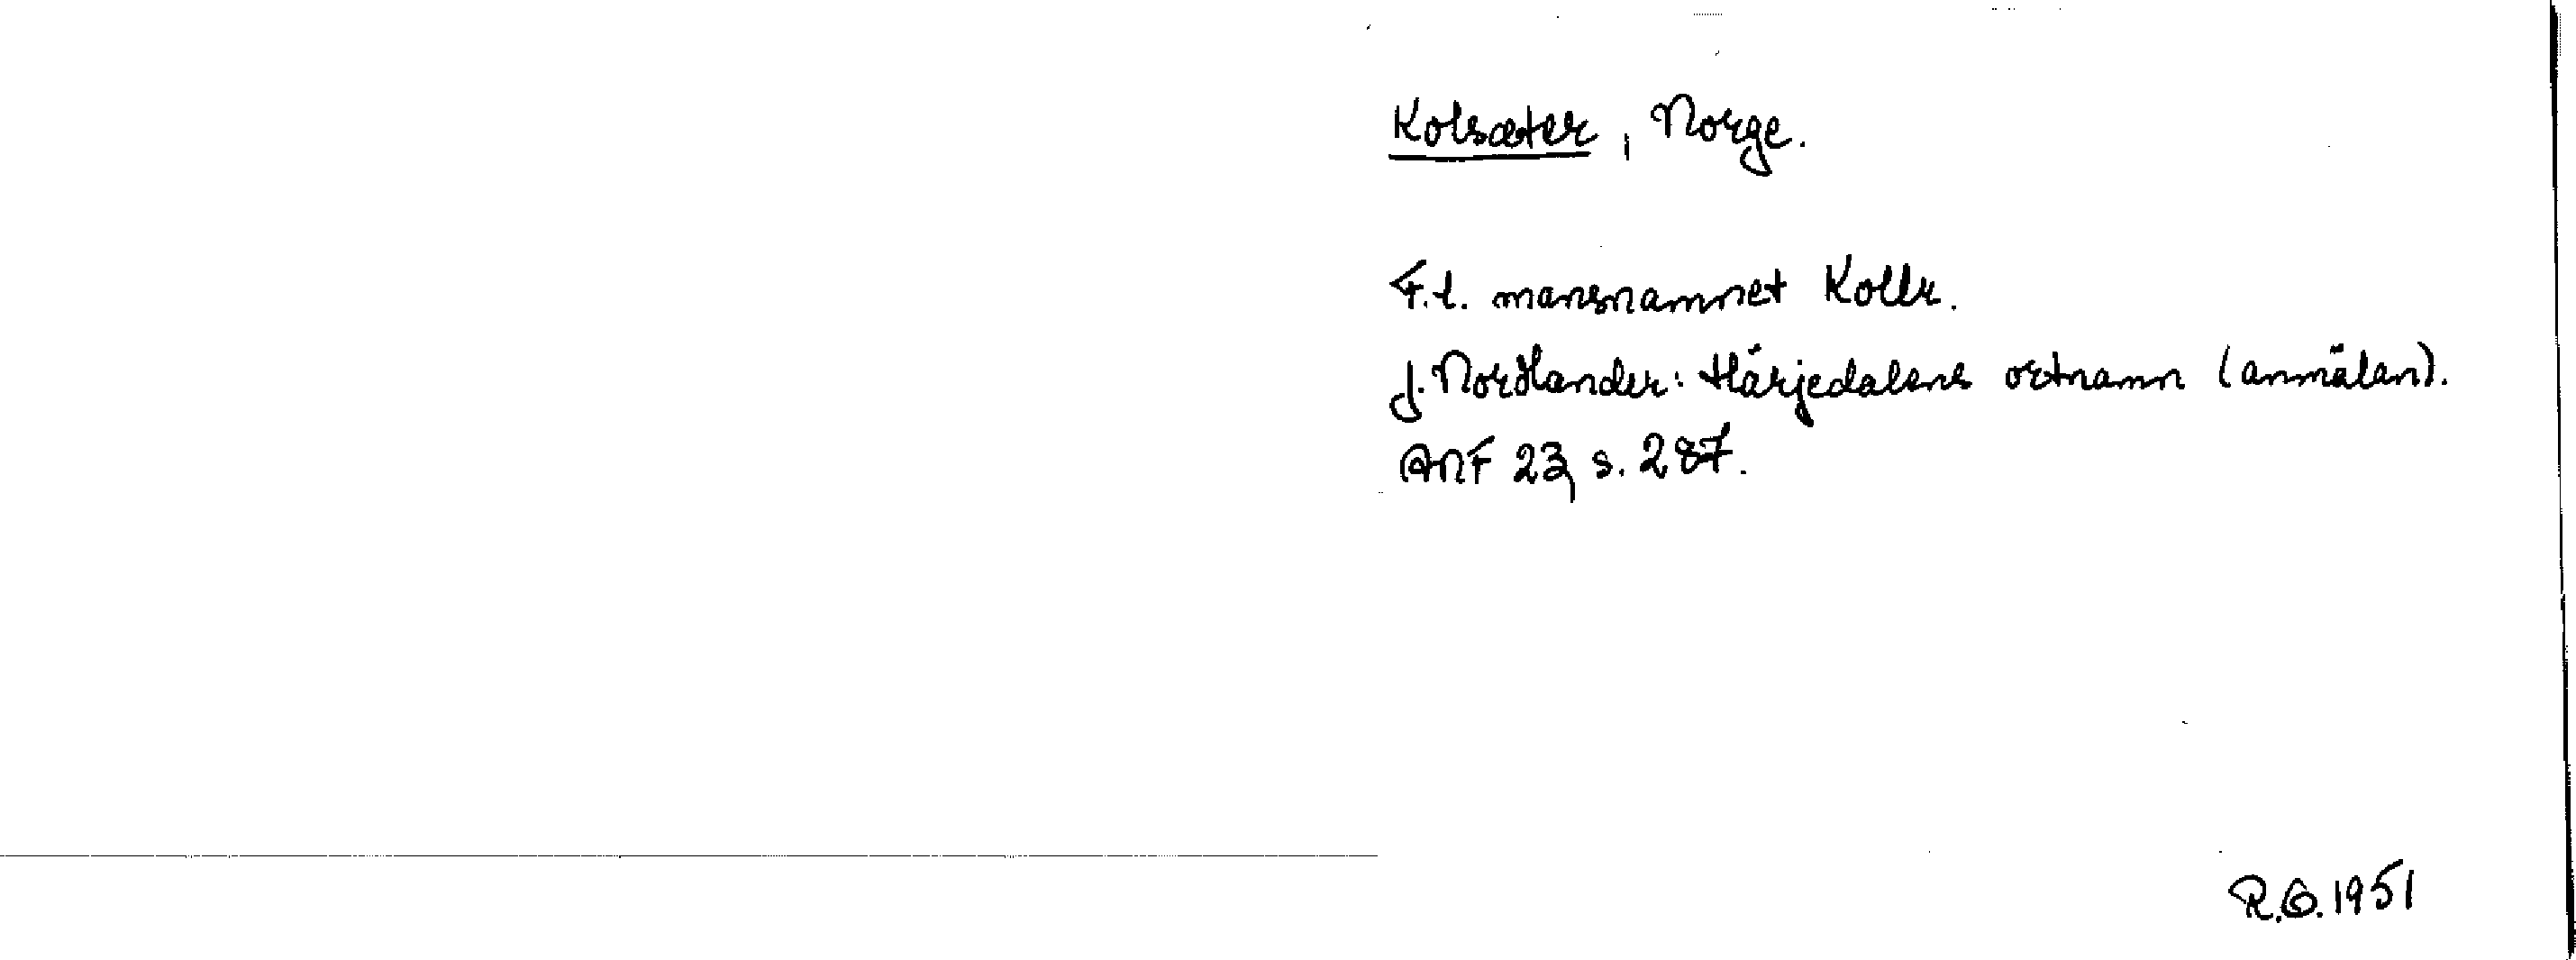 Kolsæter, Norge.
F.t. mansnamnet Kollr.
J. Nordlander: Härjedalens ortnamn (anmälan).
ANF 23, s. 287.
R.O. 1951